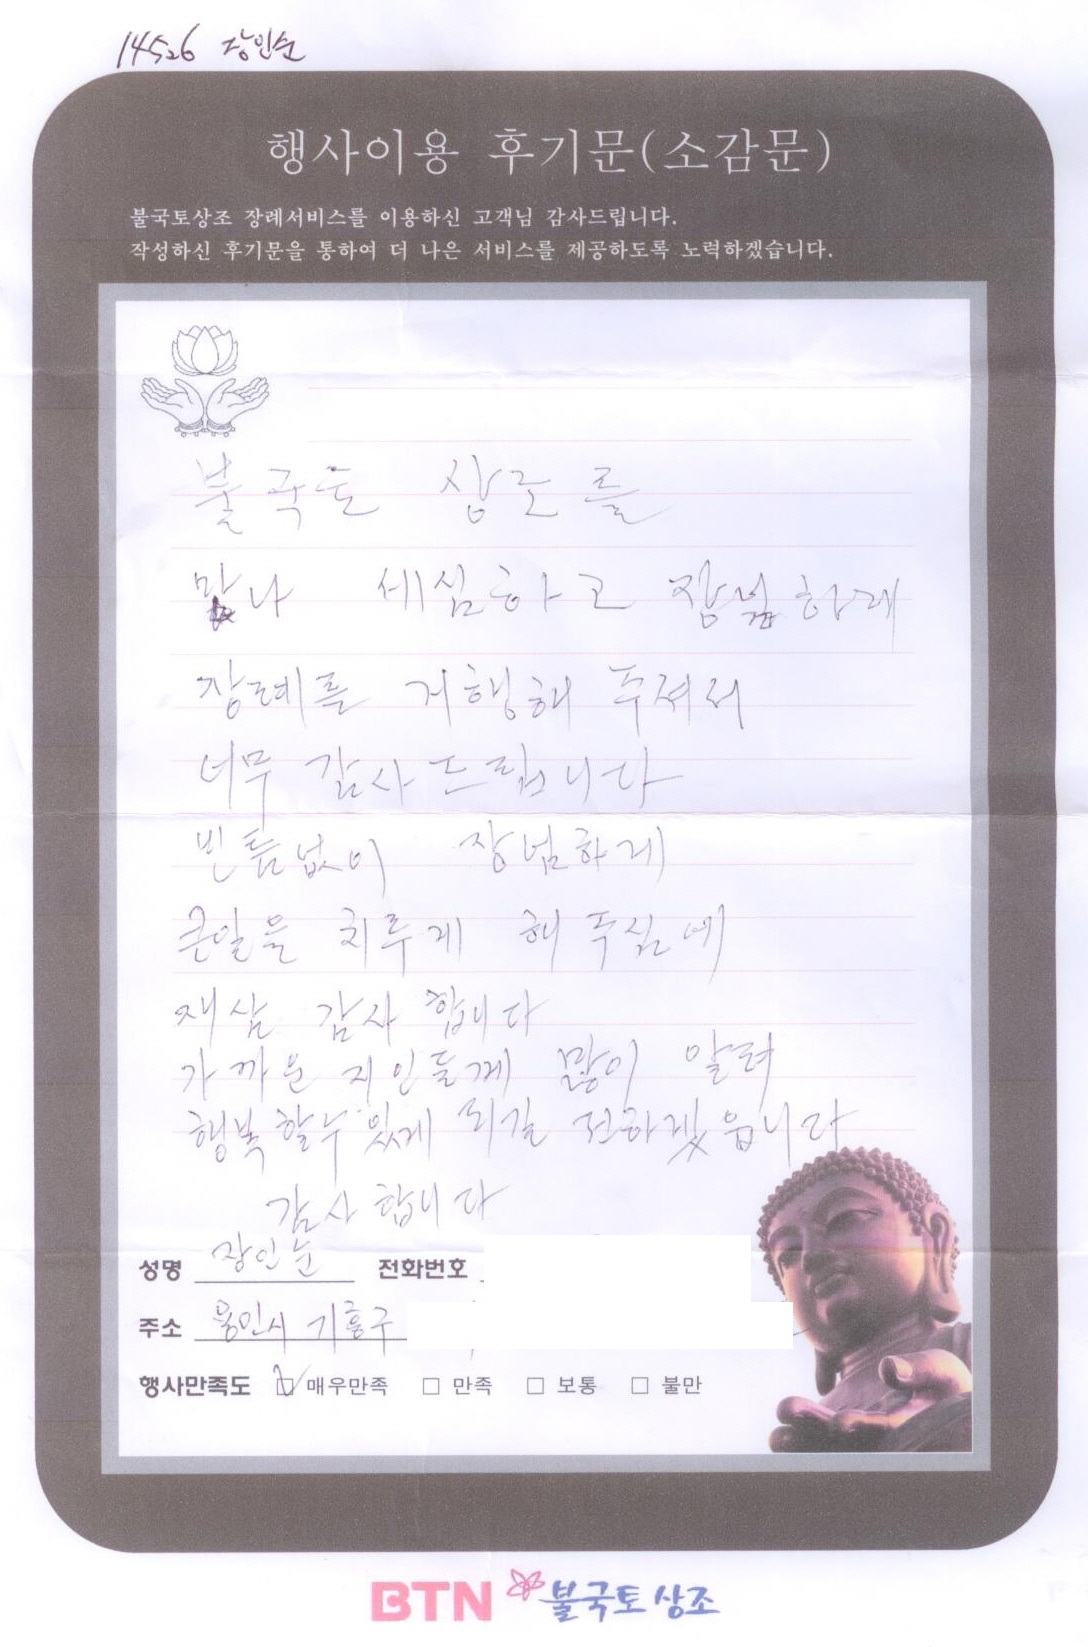 14526 장인순
행사이용 후기문(소감문)
불국토상조 장례서비스를 이용하신 고객님 감사드립니다.
작성하신 후기문을 통하여 더 나은 서비스를 제공하도록 노력하겠습니다.
불국토 상조를
만나 세심하고 장넘하게
장례를 거행해 주셔서
너무 감사드립니다
빈틈없이 장넘하게
큰일을 치루게 해 주심에
재삼 감사 합니다
가까운 지인들께 많이 알려
행복할수 있게 되길 전하겠읍니다
감사 합니다
성명 장인순 전화번호
주소 용인시 기흥구
행사만족도 ☑ 매우만족 □ 만족 □ 보통 □ 불만
BTN 불국토 상조